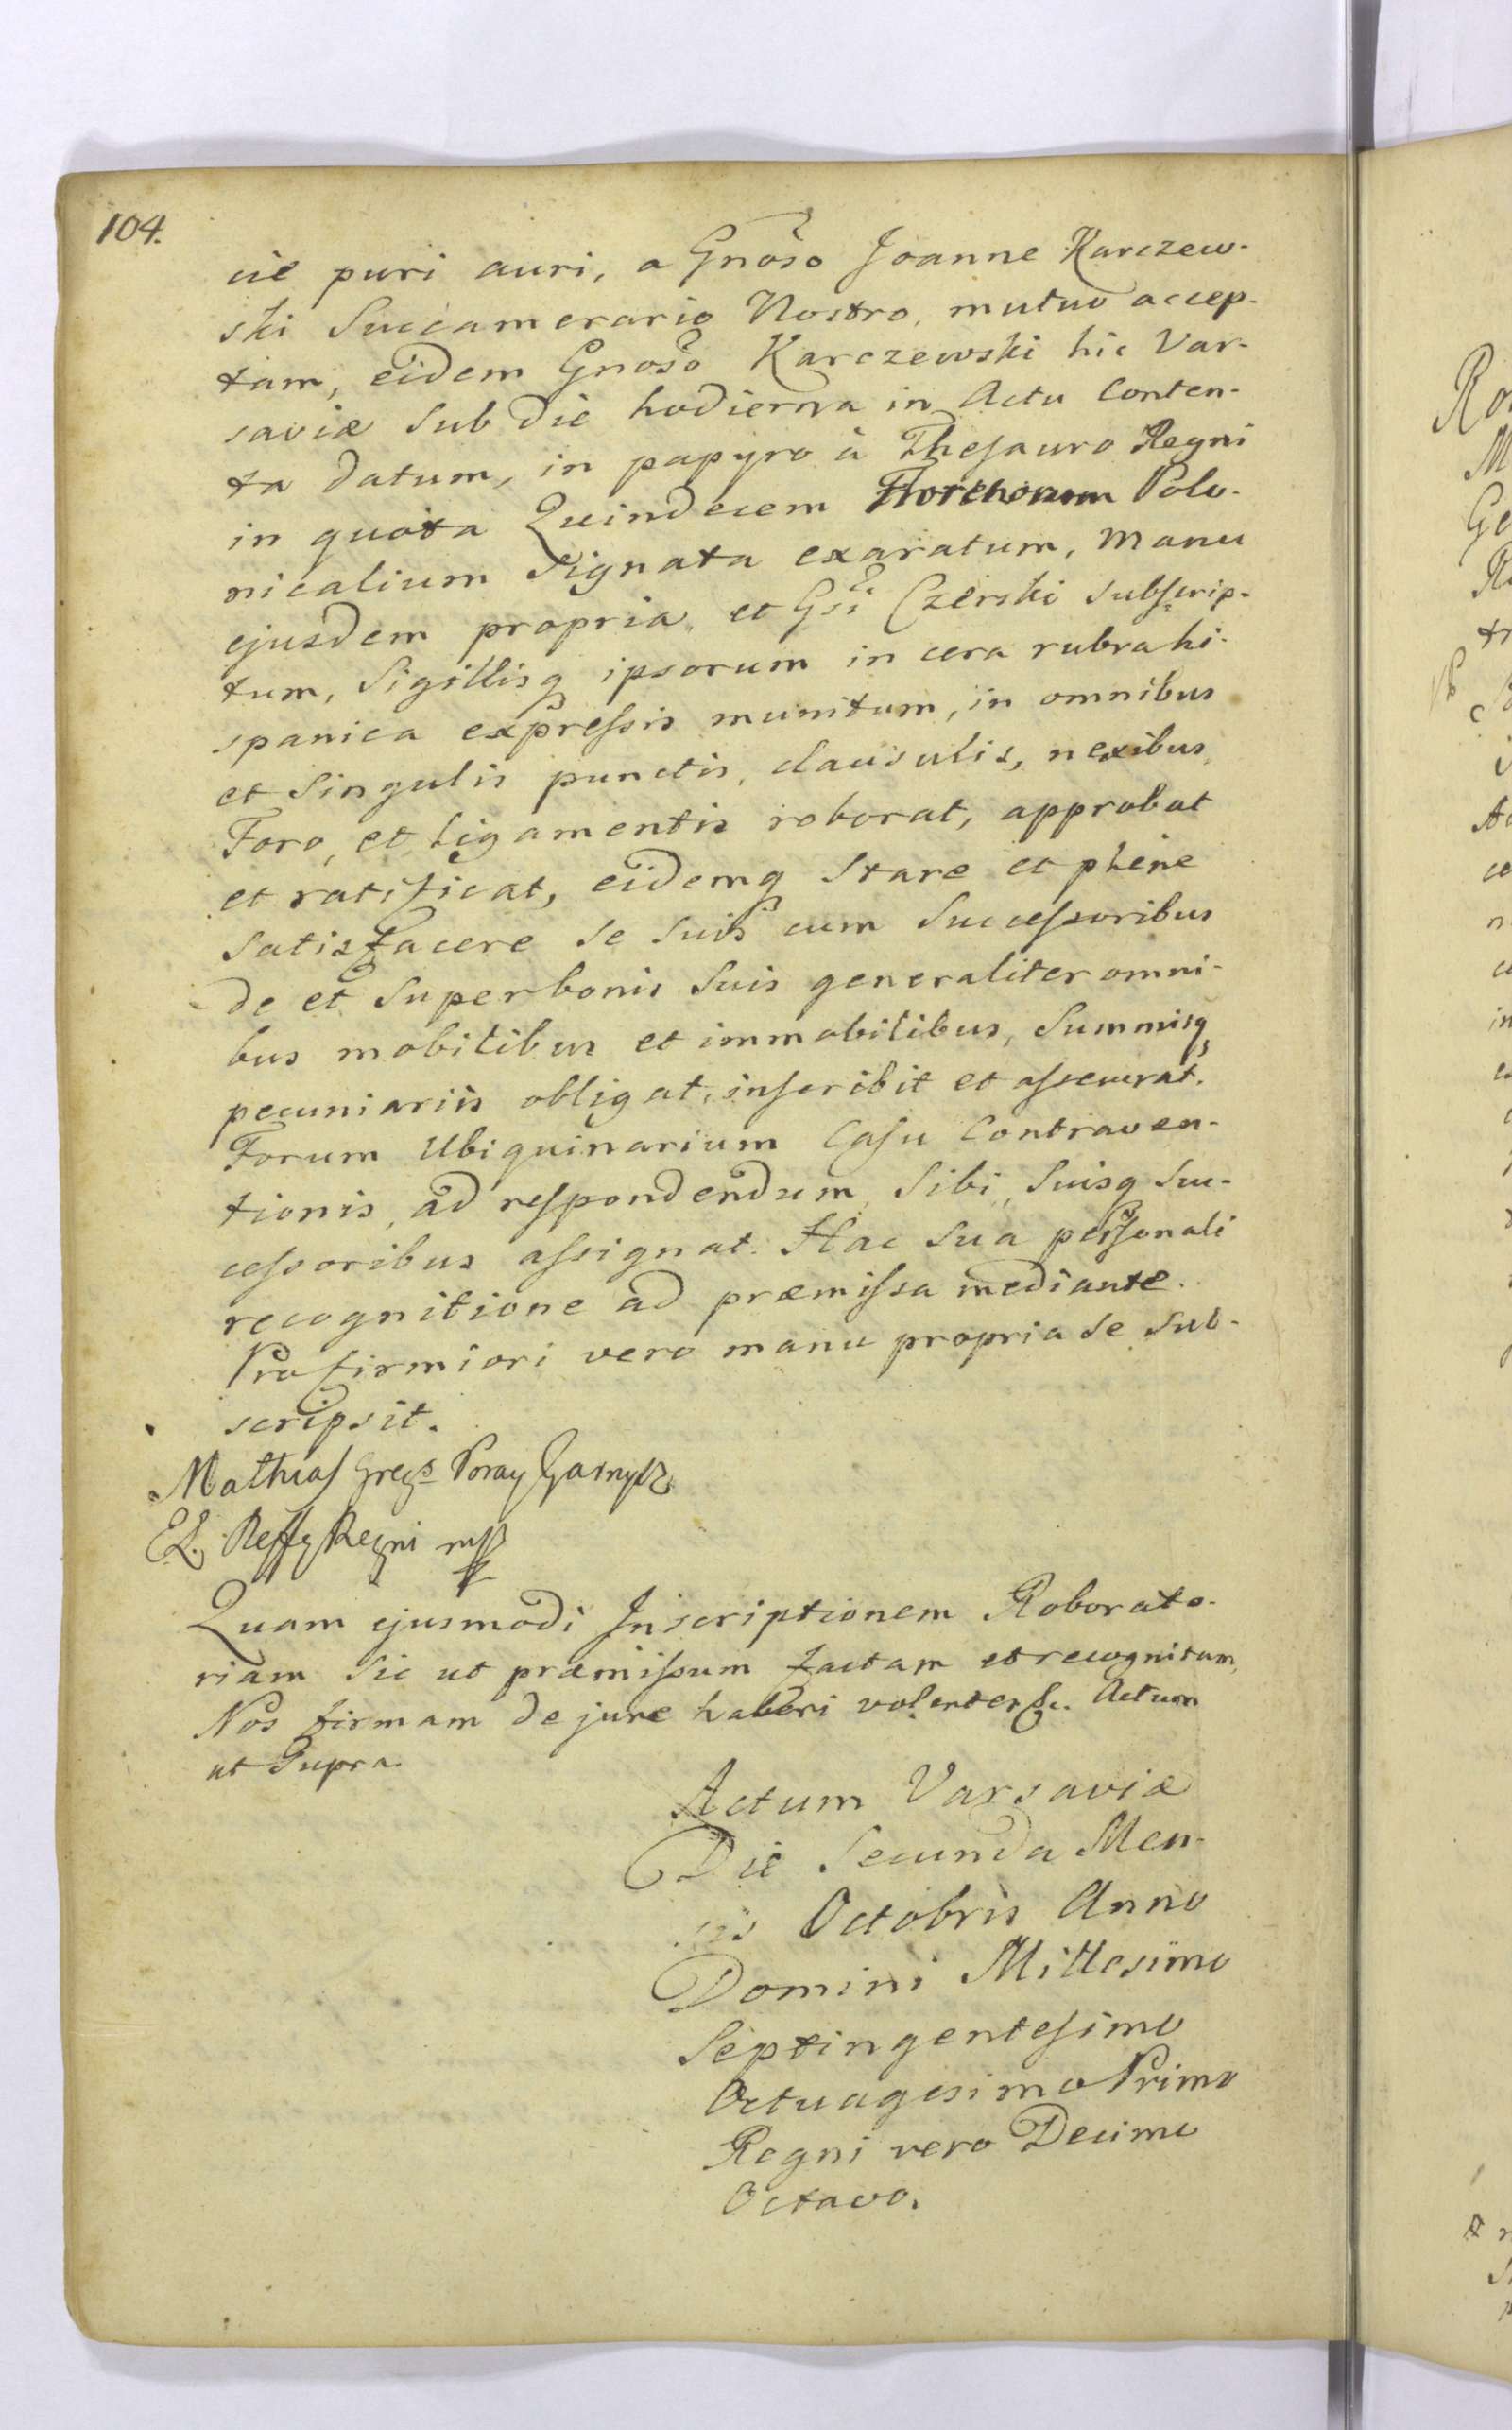 104.
cie puri auri, a Gnõso Joanne Karczew-
ski Succamerario Nostro, mutuo accep-
tam, eidem Gnoso Karczewski hic Var-
saviæ sub die hodierna in Actu Conten-
ta datum, in papyro à Thesauro Regni
in quota Quindecem Polo-
nicalium Signata exaratum, manu
ejusdem propria, et Gsi Czerski subscrip-
tum, Sigillisq ipsorum in cera rubra hi-
spanica expressis munitum, in omnibus
et Singulis punctis, clausulis, nexibus,
Foro, et Ligamentis roborat, approbat
et ratificat, eidemq Stare et plene
Satisfacere se suis cum Successoribus
de et Super bonis Suis generaliter omni-
bus mobilibus et immobilibus, Summisq
pecuniariis obligat, inscribit et assecurat.
Forum Ubiquinarium Casu Contraven-
tionis, ad respondendum, Sibi, Suisq Suc-
cessoribus assignat. Hac Sua personali
recognitione ad præmissa mediante.
Pro firmiori vero manu propria se sub-
scripsit.
Mathias Greg^s Poray Garnysz
EL. Regni mpp
Quam ejusmodi Inscriptionem Roborato-
riam Sic ut præmissum factam et recognitam,
Nos firmam de jure haberi volentes &c. Actum
ut Supra.
Actum Varsaviæ
Die Secunda Men-
sis Octobris Anno
Domini Millesimo
Septingentesimo
Octuagesimo Primo
Regni vero Decimo
Octavo.